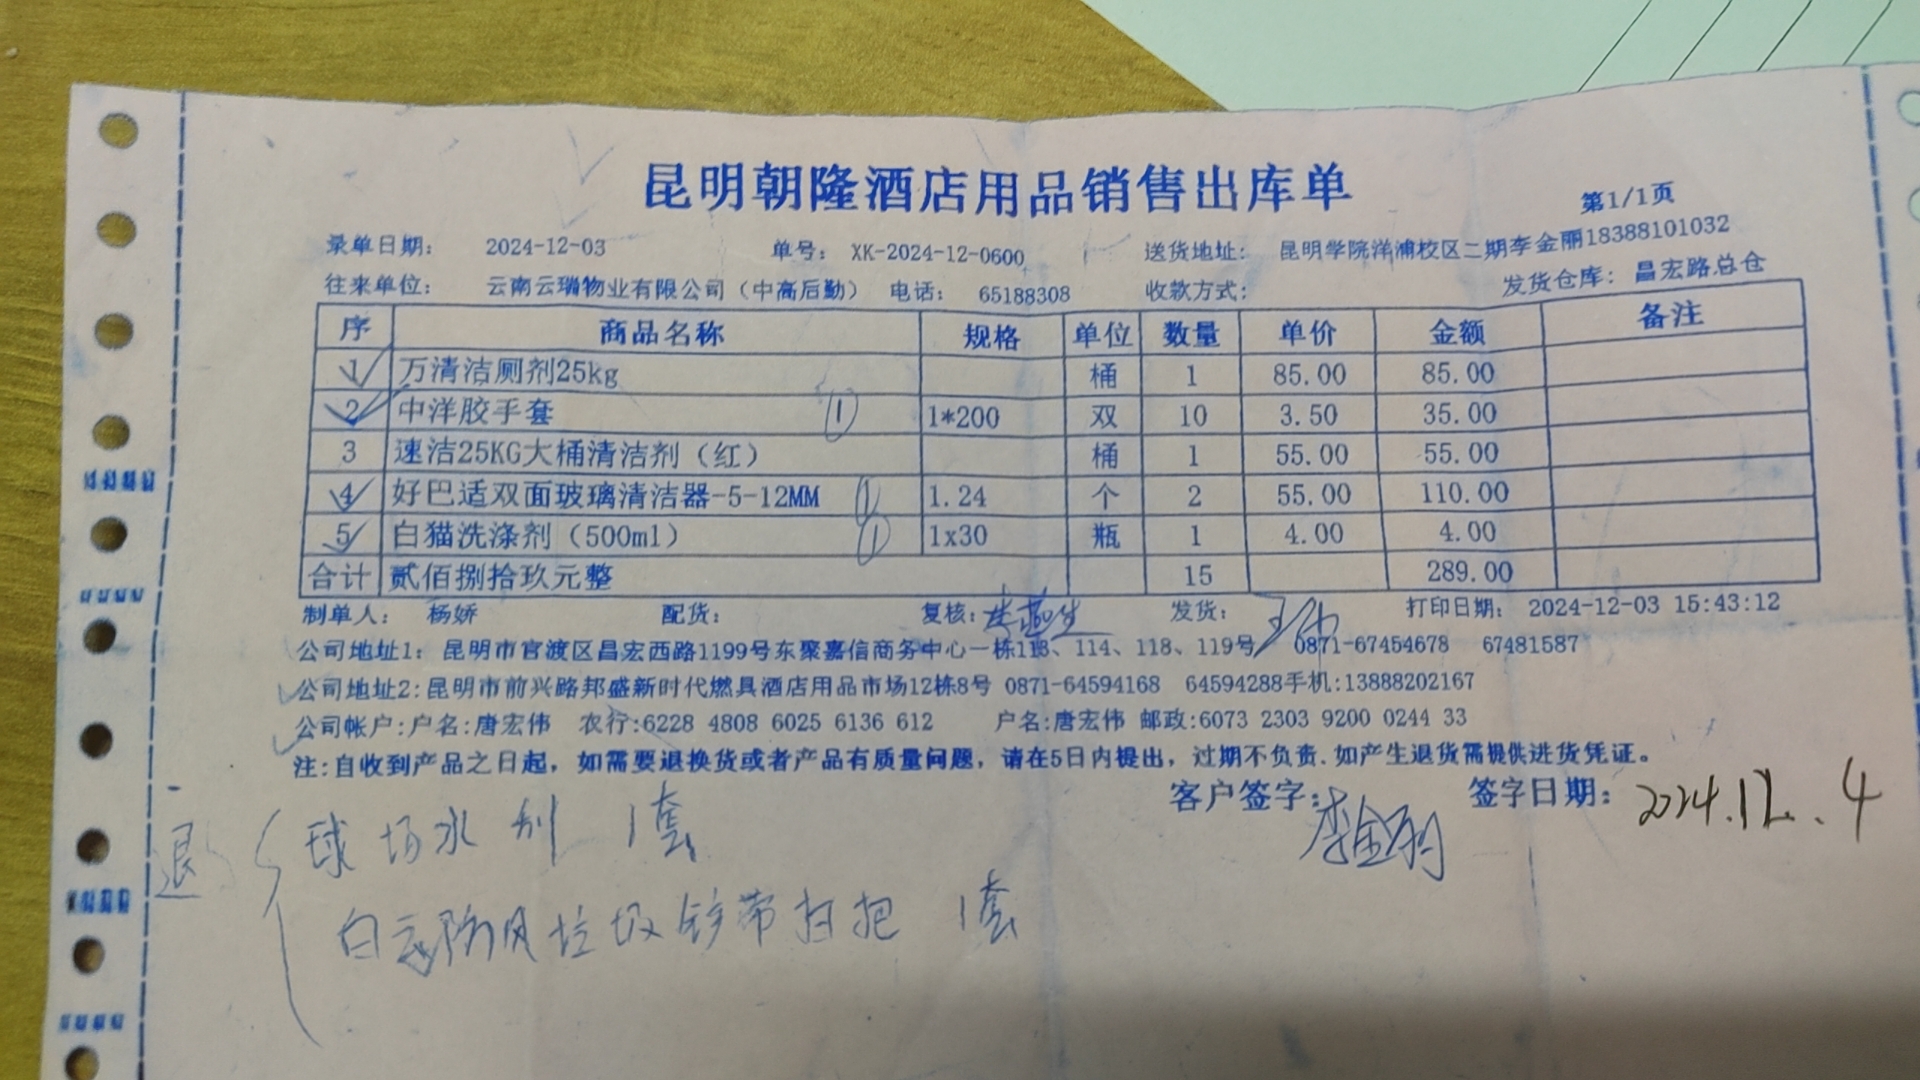 昆明朝隆酒店用品销售出库单
第1/1页
录单日期: 2024-12-03 单号: XK-2024-12-0600 送货地址: 昆明学院洋浦校区二期李金丽18388101032
往来单位: 云南云瑞物业有限公司（中高后勤） 电话: 65188308 收款方式: 发货仓库: 昌宏路总仓
序 商品名称 规格 单位 数量 单价 金额 备注
1 万清洁厕剂25kg 桶 1 85.00 85.00
2 中洋胶手套 ① 1*200 双 10 3.50 35.00
3 速洁25KG大桶清洁剂（红） 桶 1 55.00 55.00
4 好巴适双面玻璃清洁器-5-12MM ① 1.24 个 2 55.00 110.00
5 白猫洗涤剂（500ml） ① 1x30 瓶 1 4.00 4.00
合计 贰佰捌拾玖元整 15 289.00
制单人: 杨娇 配货: 复核: 发货: 打印日期: 2024-12-03 15:43:12
公司地址1: 昆明市官渡区昌宏西路1199号东聚嘉信商务中心一栋113、114、118、119号 0871-67454678 67481587
公司地址2:昆明市前兴路邦盛新时代燃具酒店用品市场12栋8号 0871-64594168 64594288手机:13888202167
公司帐户:户名:唐宏伟 农行:6228 4808 6025 6136 612 户名:唐宏伟 邮政:6073 2303 9200 0244 33
注:自收到产品之日起，如需要退换货或者产品有质量问题，请在5日内提出，过期不负责.如产生退货需提供进货凭证。
客户签字: 李金丽 签字日期: 2024.12.4
退 球场水刮 1套
白云防风垃圾铲带扫把 1套